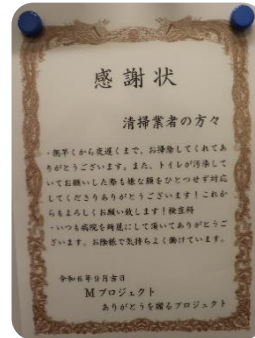 感謝状
清掃業者の方々
・朝早くから夜遅くまで、お掃除してくれてあ
りがとうございます。また、トイレが汚染して
いてお願いした際も嫌な顔をひとつせず対応
してくださりありがとうございます！これか
らもよろしくお願い致します！検査科
・いつも病院を綺麗にして頂いてありがとうご
ざいます。お陰様で気持ちよく働けています。
令和6年9月吉日
Mプロジェクト
ありがとうを綴るプロジェクト